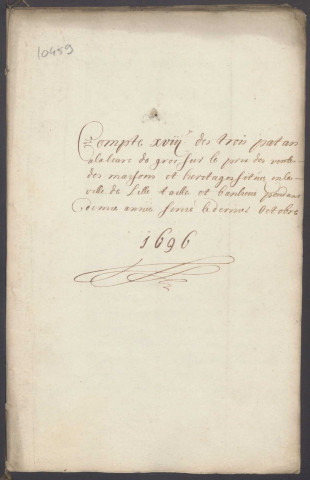 10459
Compte xviij.e des trois patars
a la livre de gros sur le prix des ventes
des maisons et heritages situez en la
ville de Lille taille et banlieue pendant
une année finie le dernier Octobre
1696